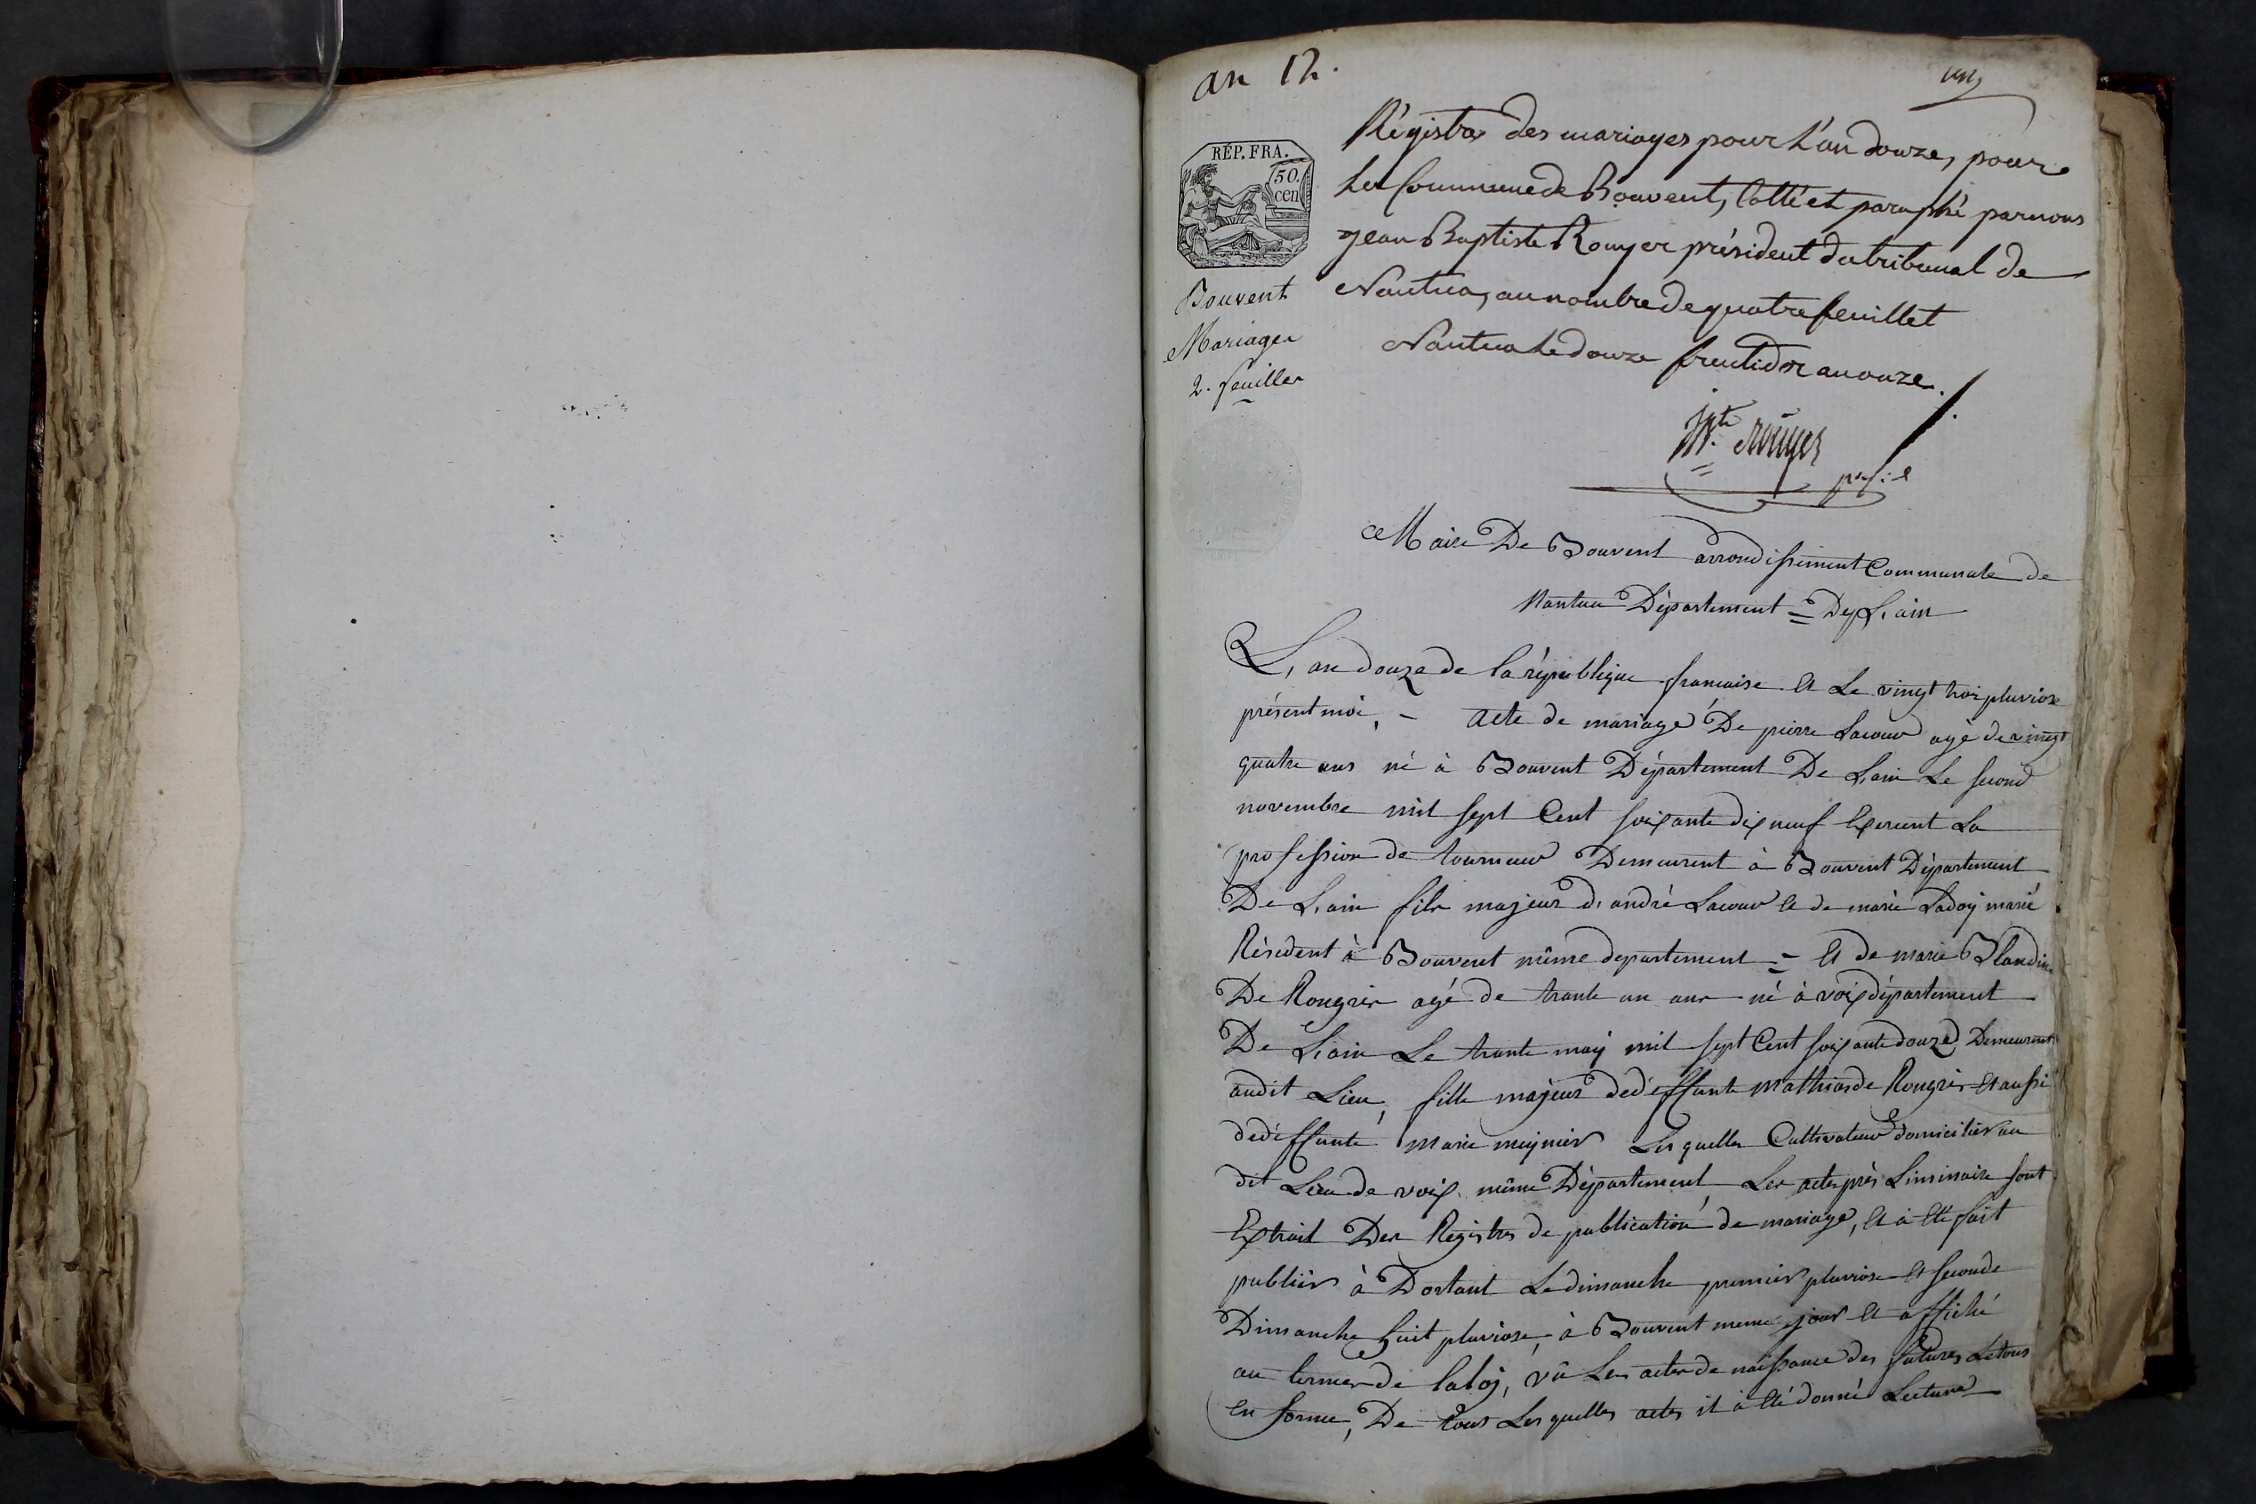 an 12.
RÉP. FRA.
50.
cen
Bouvent
Mariages
2. feuilles
Régistre des mariages pour L'an douze, pour
La Commune de Bouvent, Cotté et paraphé par nous
Jean Baptiste Rouyer président du tribunal de
Nantua, au nombre de quatre feuillet
Nantua Le douze fructidor an onze.
Jn. Bte. Rouyer
Mairie De Bouvent arrondissement Communale de
Nantua Département = De L'ain
L'an douze de la république francaise et Le vingt troi pluviose
présent moi, - acte de mariage De pierre Lacour agé de vingt
quatre ans né à Bouvent Département De L'ain Le second
novembre mil sept Cent soixante dix neuf Exercent La
profession de tourneur Demeurent à Bouvent Département
De L'ain fils majeur d'andré Lacour et de marie Ladoy marié
Résident à Bouvent même departement = et de marie Blandine
De Rougrir agé de trante un ans né à voix département
De L'ain Le trante may mil sept Cent soixante douze Demeurent
audit Lieu, fille majeur de déffunte Mathias de Rougrir et aussi
de déffunte marie meynier Les quelles Cultivateur domicilier au
dit Lieu de voix même Département, Les actes près Liminaire sont
Extrait Des Régistres de publication de mariage, et à été fait
publier à Dortant Le dimanche premier pluviose et seconde
Dimanche huit pluviose, à Bouvent meme jour et affiché
au termes de la loi, vû Les actes de naissance des futures Le tous
En forme, De tous Les quelles actes il à été donné Lecture